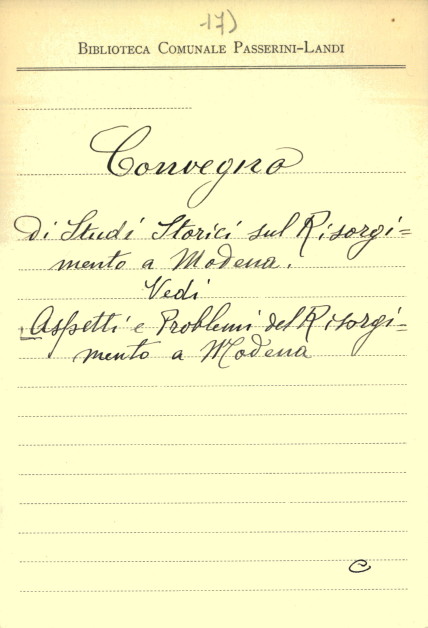 17)
BIBLIOTECA COMUNALE PASSERINI-LANDI
Convegno
di Studi Storici sul Risorgi=
mento a Modena.
Vedi
Aspetti e Problemi del Risorgi=
mento a Modena
C